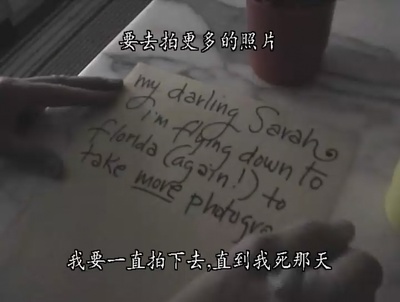 要去拍更多的照片
my darling Sarah
i'm flying down to
florida (again!) to
take more photogra
我要一直拍下去,直到我死那天